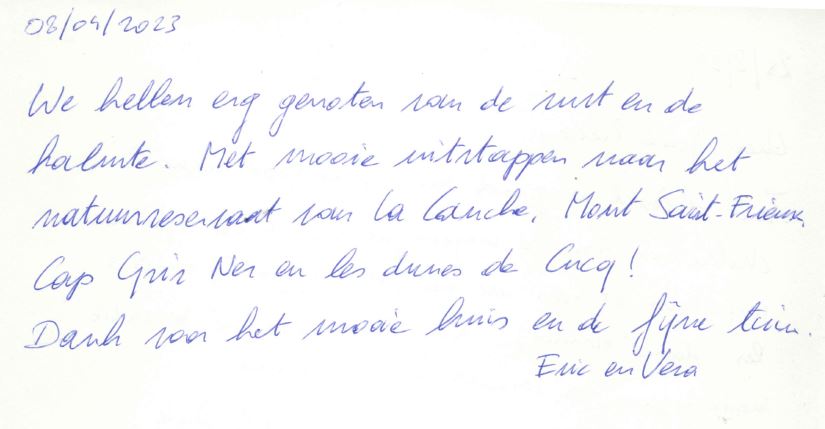 08/04/2023
We hebben erg genoten van de rust en de
kalmte. Met mooie uitstappen naar het
natuurreservaat van La Canche, Mont Saint-Frieux,
Cap Gris Nez en les dunes de Cucq!
Dank voor het mooie huis en de fijne tuin.
Eric en Vera